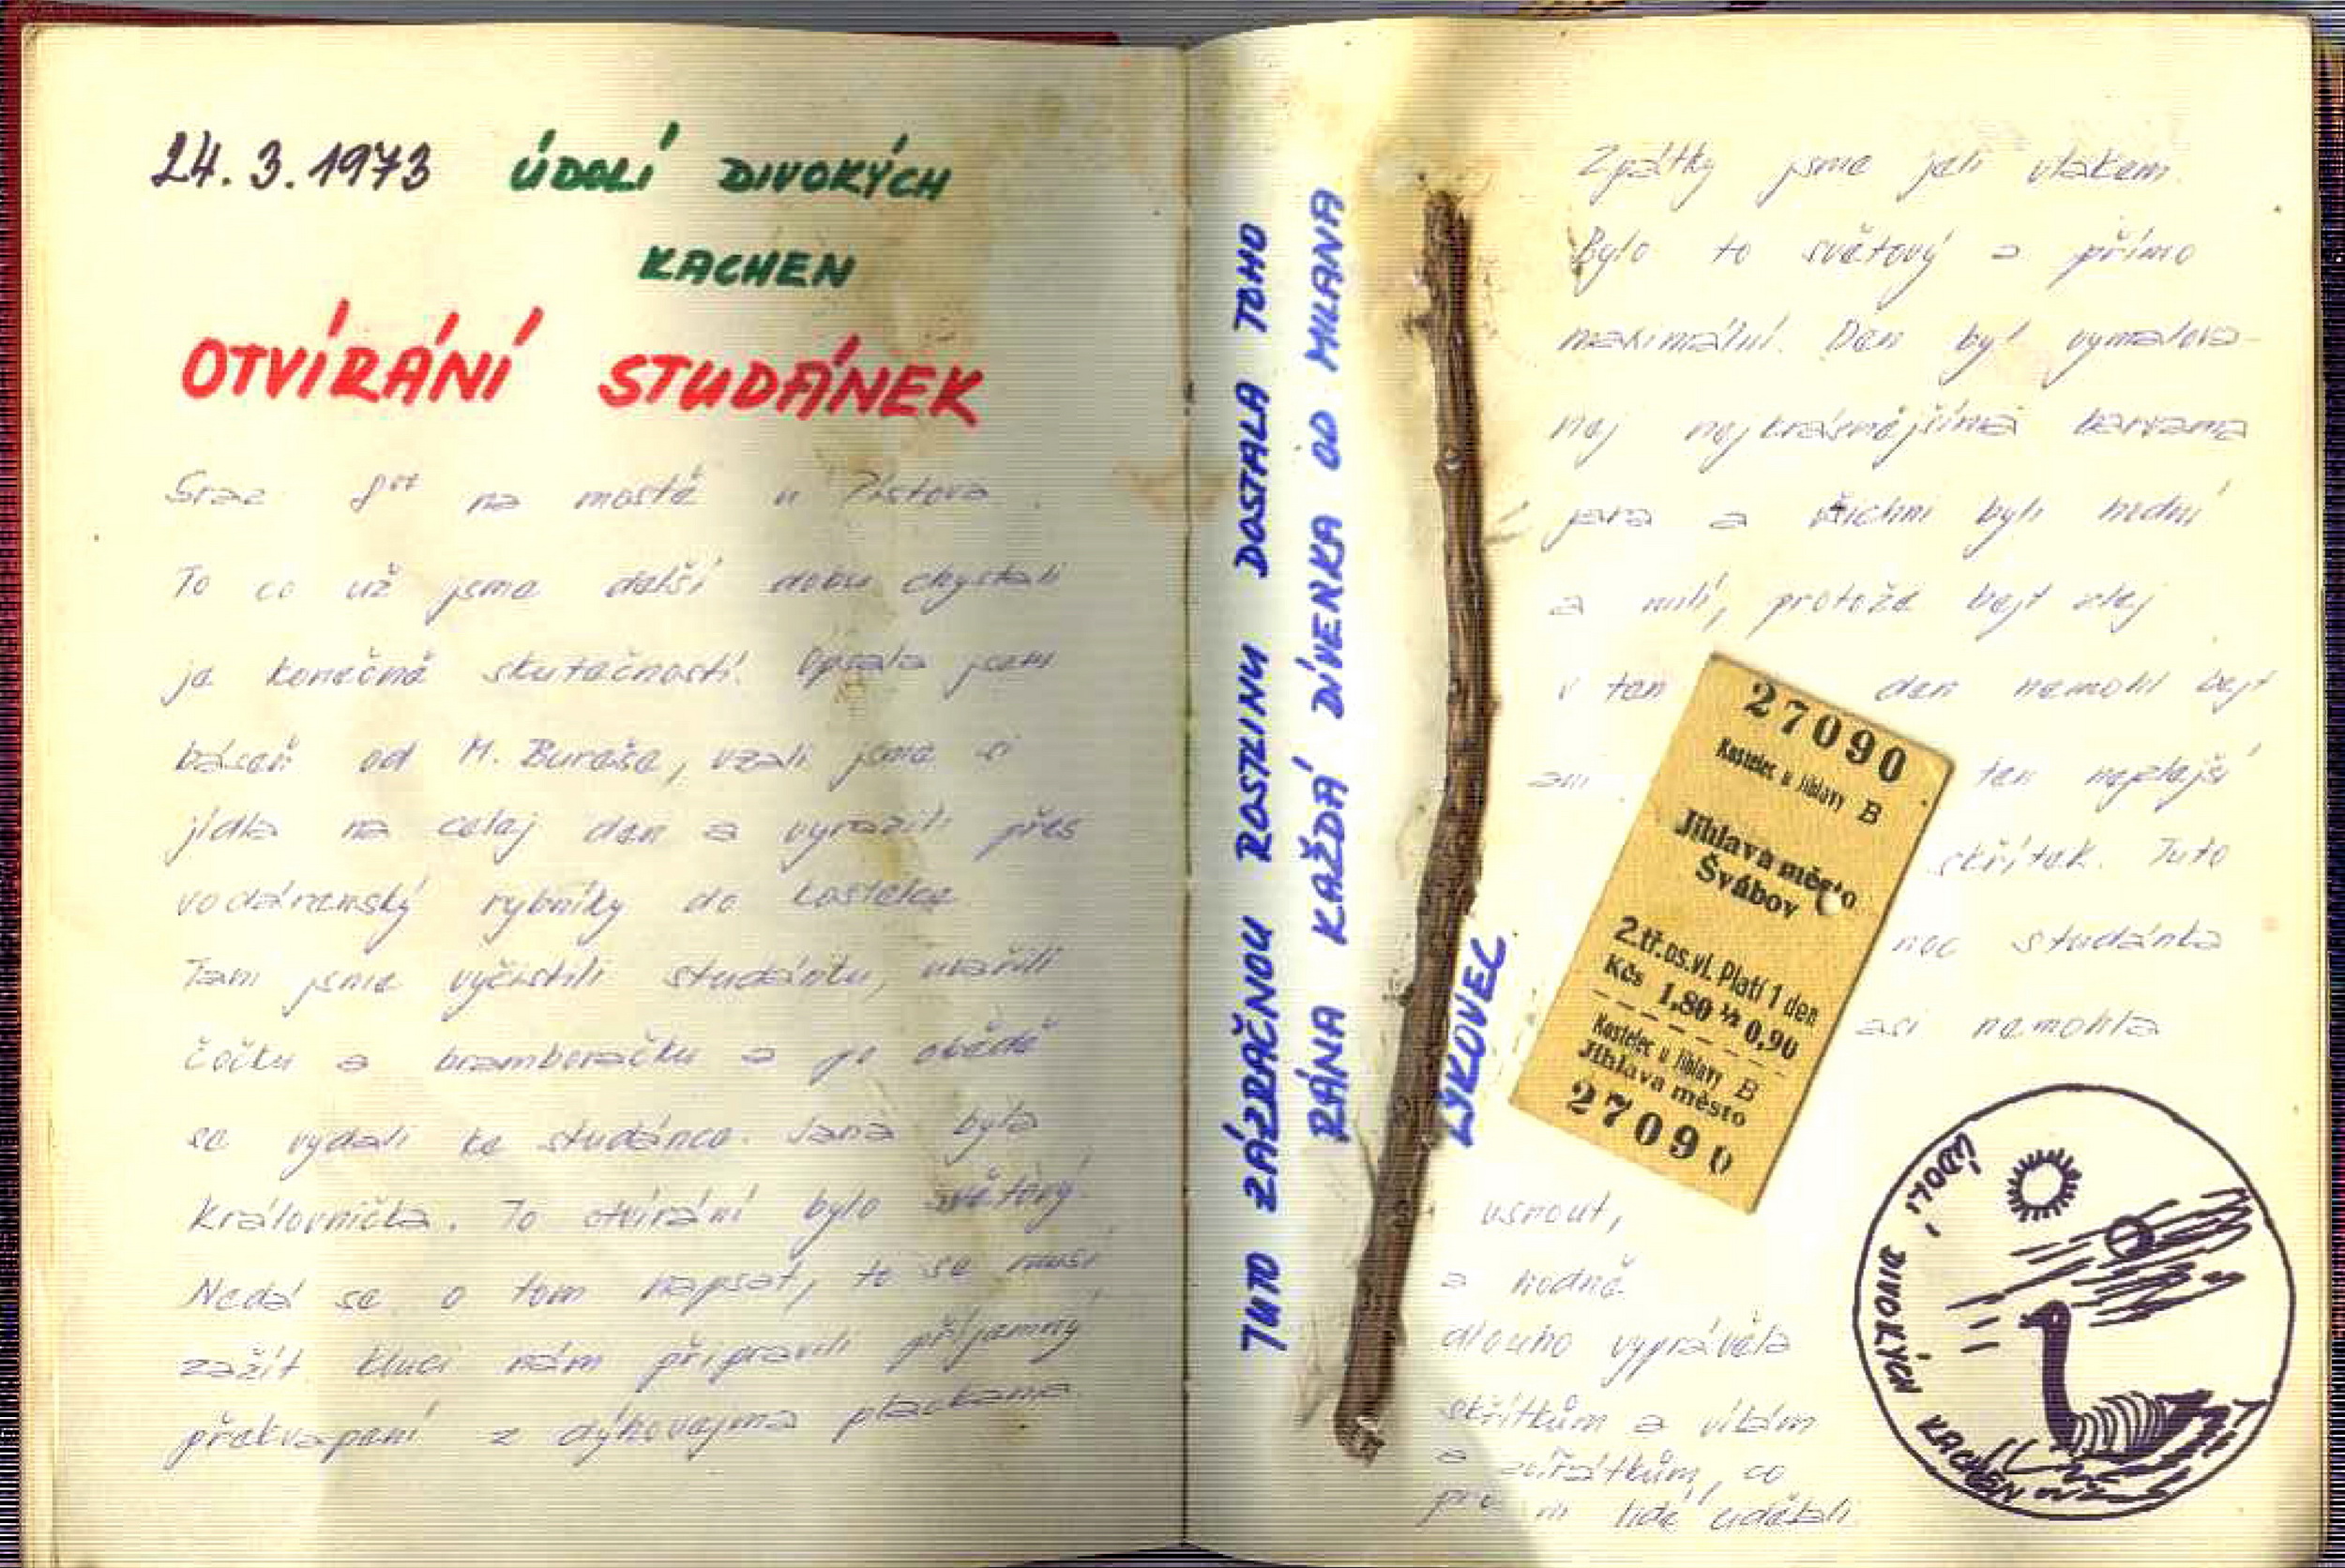 24.3.1973 ÚDOLÍ DIVOKÝCH
KACHEN
OTVÍRÁNÍ STUDÁNEK
Sraz 8⁰⁰ na mostě u Pístova.
To co už jsme delší dobu chystali
je konečně skutečností. Opsala jsem
báseň od M. Bureše, vzali jsme si
jídla na celej den a vyrazili přes
vodárenský rybníky do Kostelce
Tam jsme vyčistili studánku, uvařili
čočku a bramboračku a po obědě
se vydali ke studánce. Jana byla
královnička. To otvírání bylo světový.
Nedá se o tom napsat, to se musí
zažít. Kluci nám připravili příjemný
překvapení z dýhovejma plackama.
TUTO ZÁZRAČNOU ROSTLINU DOSTALA TOHO
RÁNA KAŽDÁ DÍVENKA OD MILANA
LÝKOVEC
Zpátky jsme jeli vlakem.
Bylo to světový a přímo
maximální. Den byl vymalova-
nej nejkrásnějšíma barvama
jara a všichni byli hodní
a milí, protože bejt zlej
v ten den nemohl bejt
ani ten nejzlejší
skřítek. Tuto
noc studánka
asi nemohla
usnout,
a hodně
dlouho vyprávěla
skřítkům a vílám
a zvířátkům, co
pro ni lidé udělali
27090
Kostelec u Jihlavy B
Jihlava město
Švábov
2.tř.os.vl. Platí 1 den
Kčs 1,80 ½ 0,90
Kostelec u Jihlavy B
Jihlava město
27090
ÚDOLÍ DIVOKÝCH KACHEN